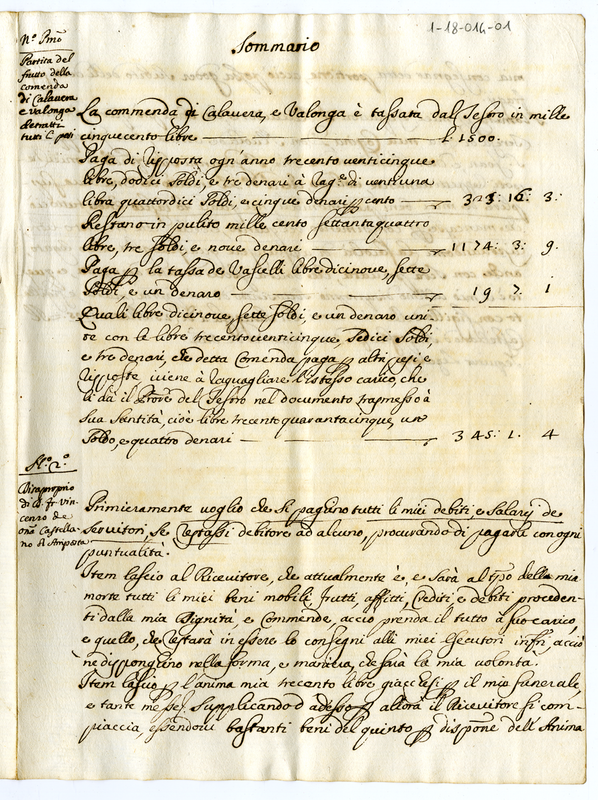 1-18-014-01
Sommario
N.º Pmo
Partita del
frutto della
comenda
di Calavera
e Valonga
detratti
tutti l pesi
La commenda di Calavera, e Valonga è tassata dal Tesoro in mille
cinquecento libre £ 1500.
Paga di risposta ogn'anno trecento venticinque
libre, dodici soldi, e tre denari à rag.e di ventuna
libra quattordici soldi, e cinque denari p cento 325: 16: 3:
Restano in pulito mille cento settantaquattro
libre, tre soldi, e nove denari 1174: 3: 9.
Paga p la tassa de Vascelli libre dicinove, sette
soldi, e un denaro 19 7. 1
Quali libre dicinove, sette soldi, e un denaro uni-
te con le libre trecento venticinque, sedici soldi,
e tre denari, che detta Comenda paga p altri pesi, e
risposte, viene à raguagliare l'istesso carico, che
li dà il del Tesoro nel documento trasmesso à
sua Santità, cioè libre trecento quarantacinque, un
soldo, e quattro denari 345: 1. 4
N.º 2.º
Disaproprio
di D. fr Vin-
cenzo de
Oña Castella-
no d'Amposta
Primieramente voglio che si paghino tutti li miei debiti, e salarij de
servitori, se restassi debitore ad alcuno, procurando di pagarli con ogni
puntualità.
Item lascio al Ricevitore, che attualmente è, e sarà al tpo della mia
morte tutti li miei beni mobili, frutti, affitti, crediti e debiti proceden-
ti dalla mia Dignità, e Commende, acciò prenda il tutto à suo carico,
e quello, che restarà in essere lo consegni alli miei Esecutori infri, acciò
ne dispongano nella forma, e maniera, che sarà la mia volontà.
Item lascio p l'anima mia trecento libre p il mio funerale,
e tante messe, supplicando adesso p allora il Ricevitore si com-
piaccia, essendovi bastanti beni del quinto p dispone dell'Anima